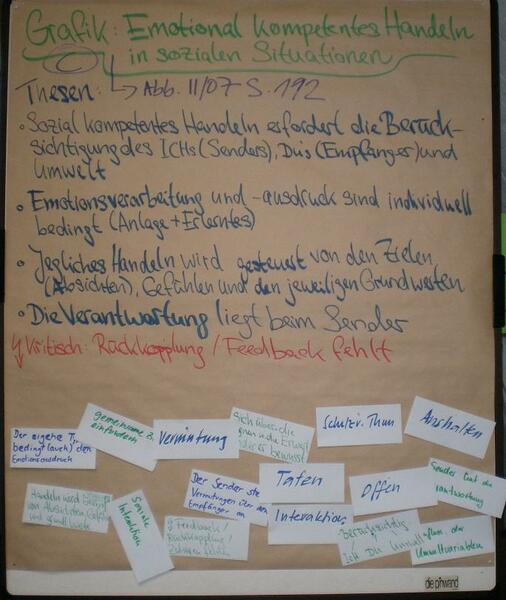 Grafik: Emotional kompetentes Handeln
in sozialen Situationen
Thesen: → Abb. 11/07 S. 192
• Sozial kompetentes Handeln erfordert die Berück-
sichtigung des ICHs (Senders), Du's (Empfänger) und
Umwelt
• Emotionsverarbeitung und -ausdruck sind individuell
bedingt (Anlage + Erlerntes)
• Jegliches Handeln wird gesteuert von den Zielen
(Absichten), Gefühlen und den jeweiligen Grundwerten
• Die Verantwortung liegt beim Sender
Kritisch: Rückkopplung / Feedback fehlt
gemeinsame
einfordern
Der eigene
bedingt (auch) den
Emotionsausdruck
Vermutung
sich über die
bewusst
Schulz v. Thun
Aushalten
Handeln wird
von Absichten
und Grundwerte
Soziale
Interaktion
Der Sender
Vermutungen über den
Empfänger an
Feedback /
Rückkopplung /
fehlen
Taten
Interaktion
Offen
Sender hat die
Verantwortung
Ich Du Umwelt
der
Umweltvariablen
die pinwand